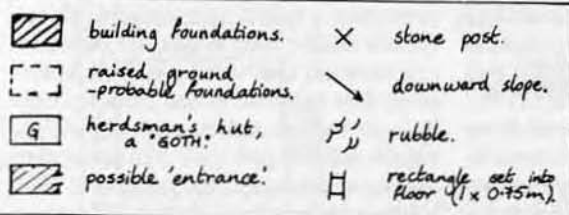 building foundations.
raised ground
-probable foundations.
G
herdsman's hut,
a "GOTH".
possible 'entrance'.
stone post.
downward slope.
rubble.
rectangle set into
floor (1 x 0.75m).